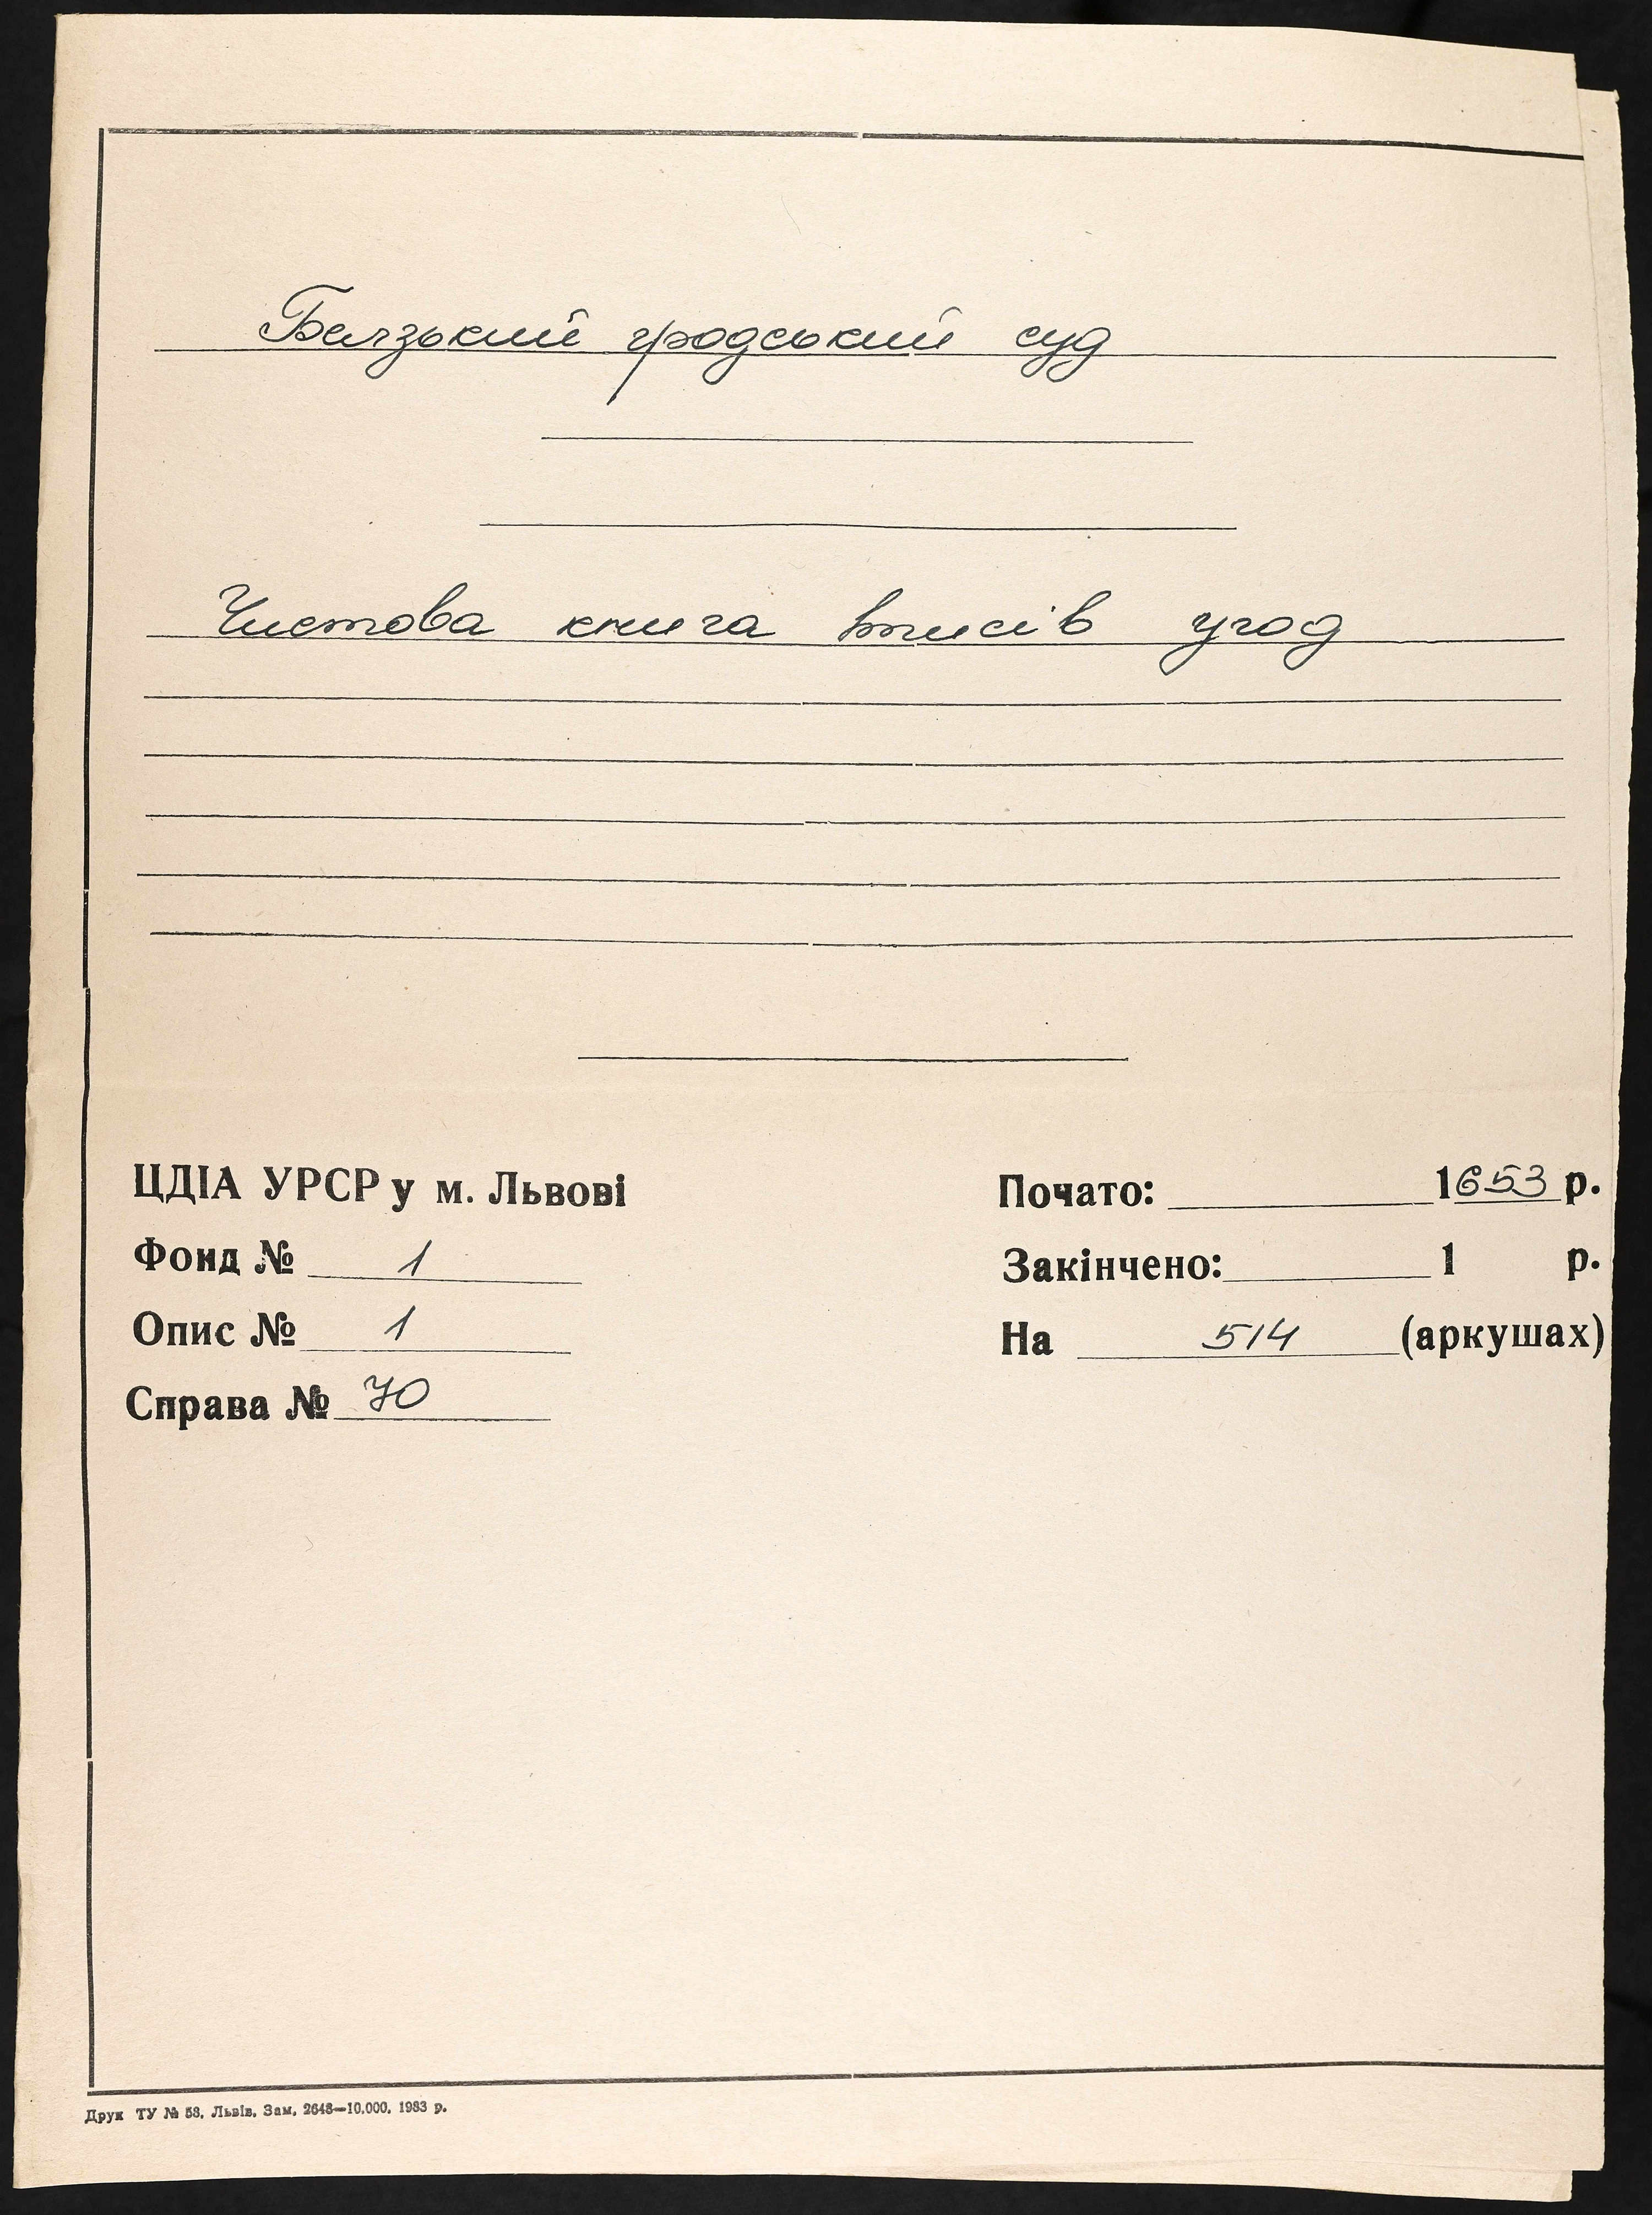 Белзький гродський суд
Чистова книга вписів угод
ЦДІА УРСР у м. Львові
Фонд № 1
Опис № 1
Справа № 70
Почато: 1653 р.
Закінчено: 1 р.
На 514 (аркушах)
Друк ТУ № 58, Львів, Зам. 2648—10.000. 1983 р.